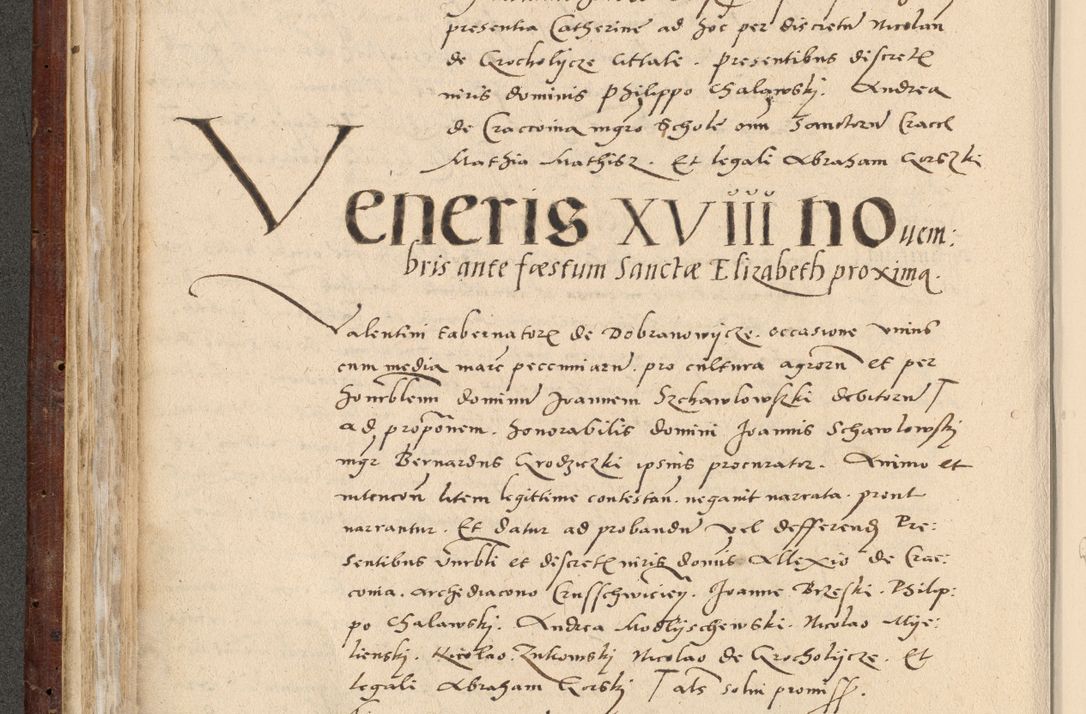 presentia Catherine ad hoc per discretu Nicolau
de Grocholijcze cittate. presentibus discret
viris dominis Philippo Chalawski. Andrea
de Craccovia mgro Schole omn Sanctoru Cracc
Mathia Mathisz. Et legali Abraham Gorszki
Veneris XVIII novem:
bris ante fæstum Sanctæ Elizabeth proxima.
Valentini tabernatore de Dobranowijcze. occasione unius
cum media marc peccuniaru. pro cultura agroru et per
honorblem dominu Joannem Szchawlowszki debitoru
ad proponem. honorabilis domini Joannis Schawlowskj
mgr Bernardus Grodziczki ipsius procurator. Animo et
intencon litem legittime contestan. negavit narrata. prout
narrantur. Et datur ad probandu vel defferend Pre:
sentibus Vnrbli et discret viris domis Allexio de Crac:
covia. Archediacono Joanne Brzeski. Philip:
po Chalawskj. Andrea Modlijschewski. Nicolao Mye:
lienskj. Nicolao Zukowski Nicolao de Grocholijcze. Et
legali Abraham Gorskj als solvi promiss.